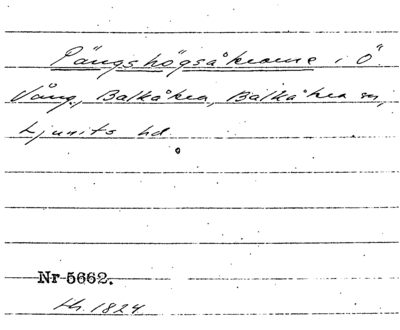 Pängshögsåkrarne i Ö
Vång, Balkåkra, Balkåkra sn,
Ljunits hd.
Nr 5662.
th. 1824